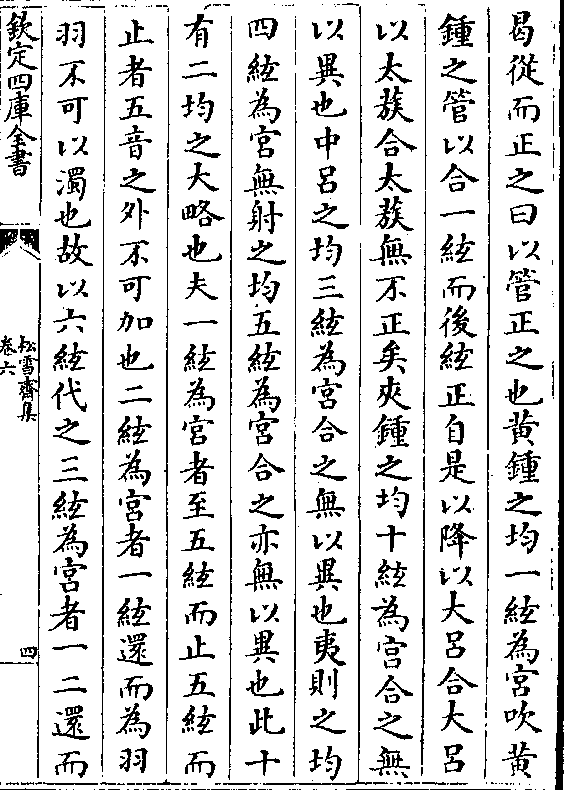 曷從而正之曰以管正之也黄鍾之均一絃為宮吹黄
鍾之管以合一絃而後絃正自是以降以大呂合大呂
以太蔟合太蔟無不正矣夾鍾之均十絃為宮合之無
以異也中呂之均三絃為宮合之無以異也夷則之均
四絃為宮無射之均五絃為宮合之亦無以異也此十
有二均之大略也夫一絃為宮者至五絃而止五絃而
止者五音之外不可加也二絃為宮者一絃還而為羽
羽不可以濁也故以六絃代之三絃為宮者一二還而
欽定四庫全書
松雪齋集
卷六
四